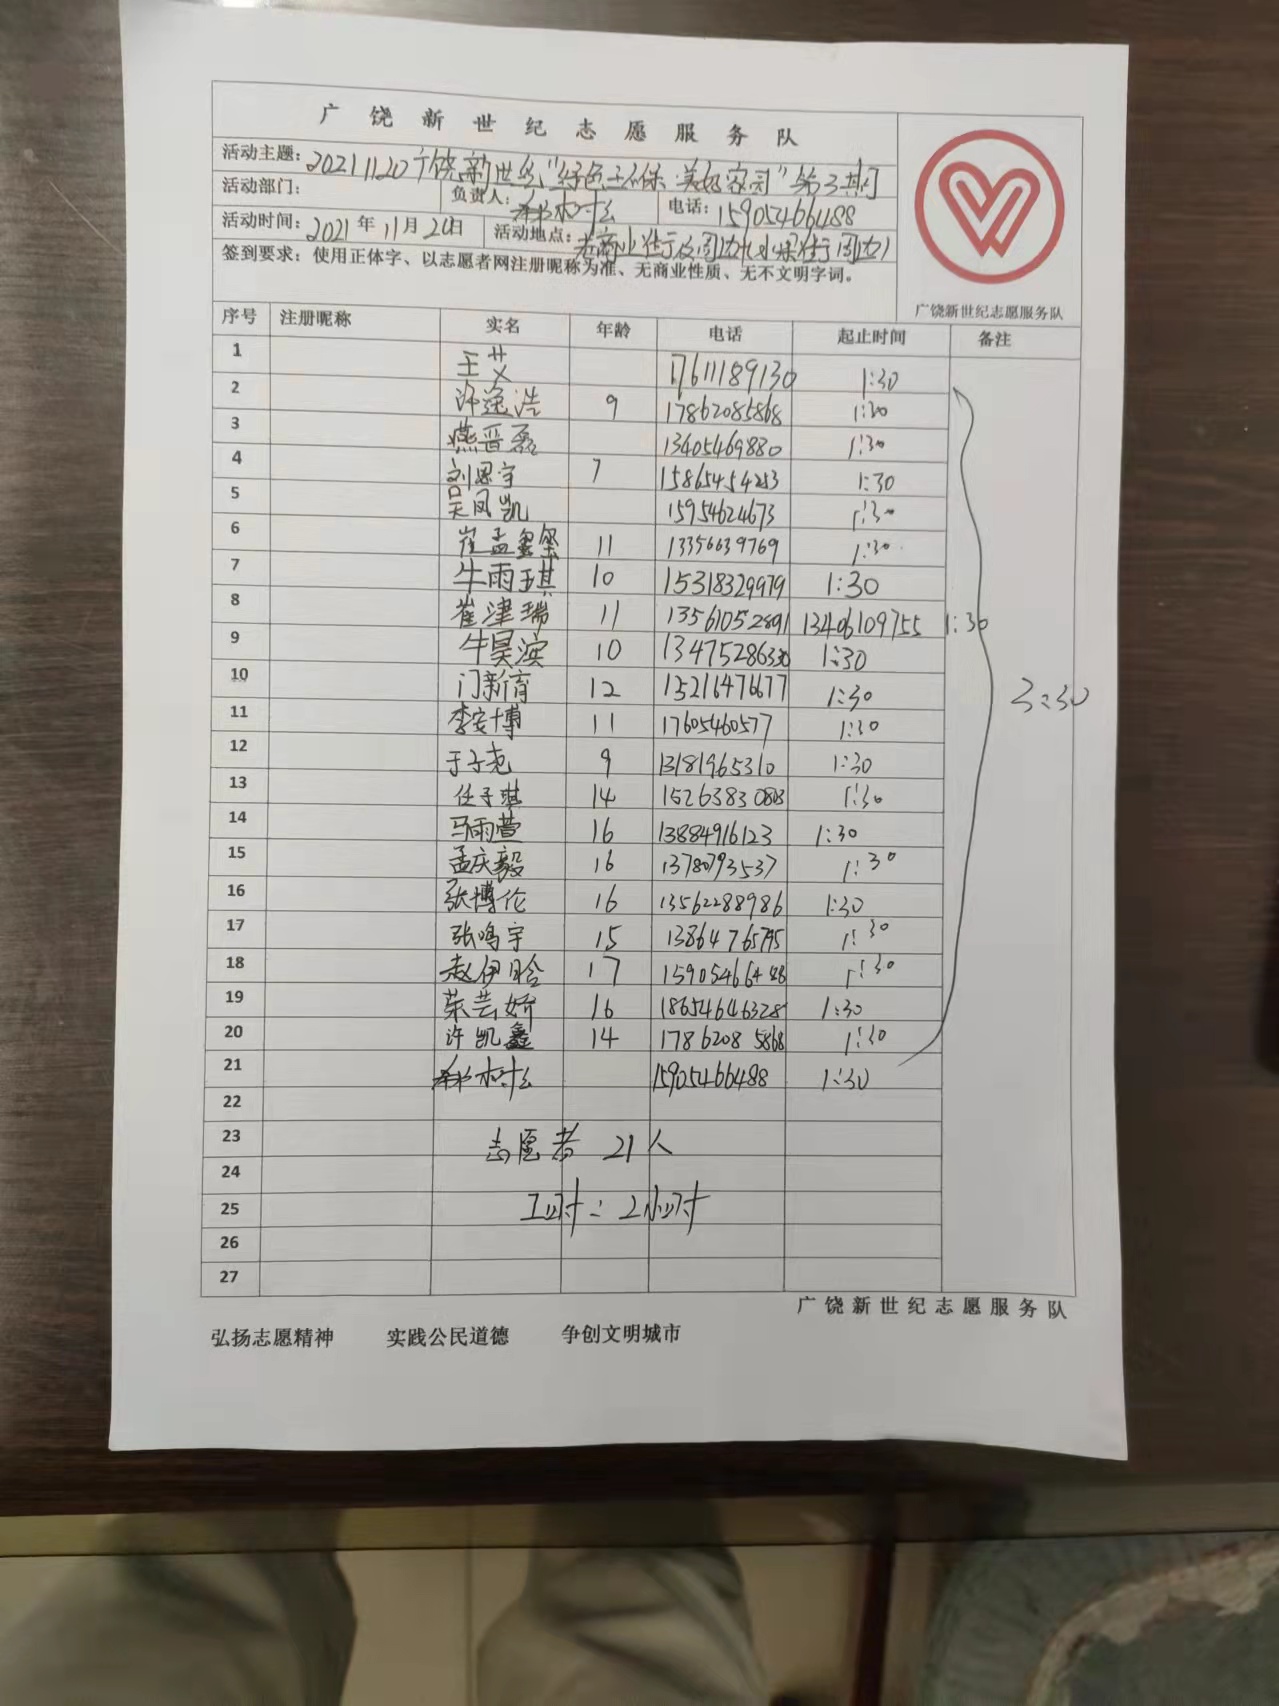 广饶新世纪志愿服务队
活动主题: 20211120广饶新世纪"绿色环保·美好家园"第3期
活动部门: 负责人: 电话: 15905466488
活动时间: 2021年11月20日 活动地点: 老商业街及周边(水果街周边)
签到要求: 使用正体字、以志愿者网注册昵称为准、无商业性质、无不文明字词。
广饶新世纪志愿服务队
序号 注册昵称 实名 年龄 电话 起止时间 备注
1 王艾 17611189130 1:30
2 许逸浩 9 17862085868 1:30
3 燕晋磊 13405469880 1:30
4 刘恩宇 7 15865454253 1:30
5 吴凤凯 15954624673 1:30
6 崔孟 11 13356639769 1:30
7 牛雨琪 10 15318329979 1:30
8 崔津瑞 11 13561052891 13406109755 1:30
9 牛昊滨 10 13475286330 1:30
10 门新育 12 15216476677 1:30
3:30
11 李安博 11 17605460577 1:30
12 于子尧 9 13181965310 1:30
13 任子琪 14 15263830803 1:30
14 马雨萱 16 13884916123 1:30
15 孟庆毅 16 13780793537 1:30
16 张博伦 16 13562288986 1:30
17 张鸣宇 15 13864765795 1:30
18 赵伊晗 17 15905466488 1:30
19 荣芸娇 16 18654646328 1:30
20 许凯鑫 14 17862085868 1:30
21 15905466488 1:30
22
23 志愿者 21人
24
25 工时: 2小时
26
27
广饶新世纪志愿服务队
弘扬志愿精神 实践公民道德 争创文明城市